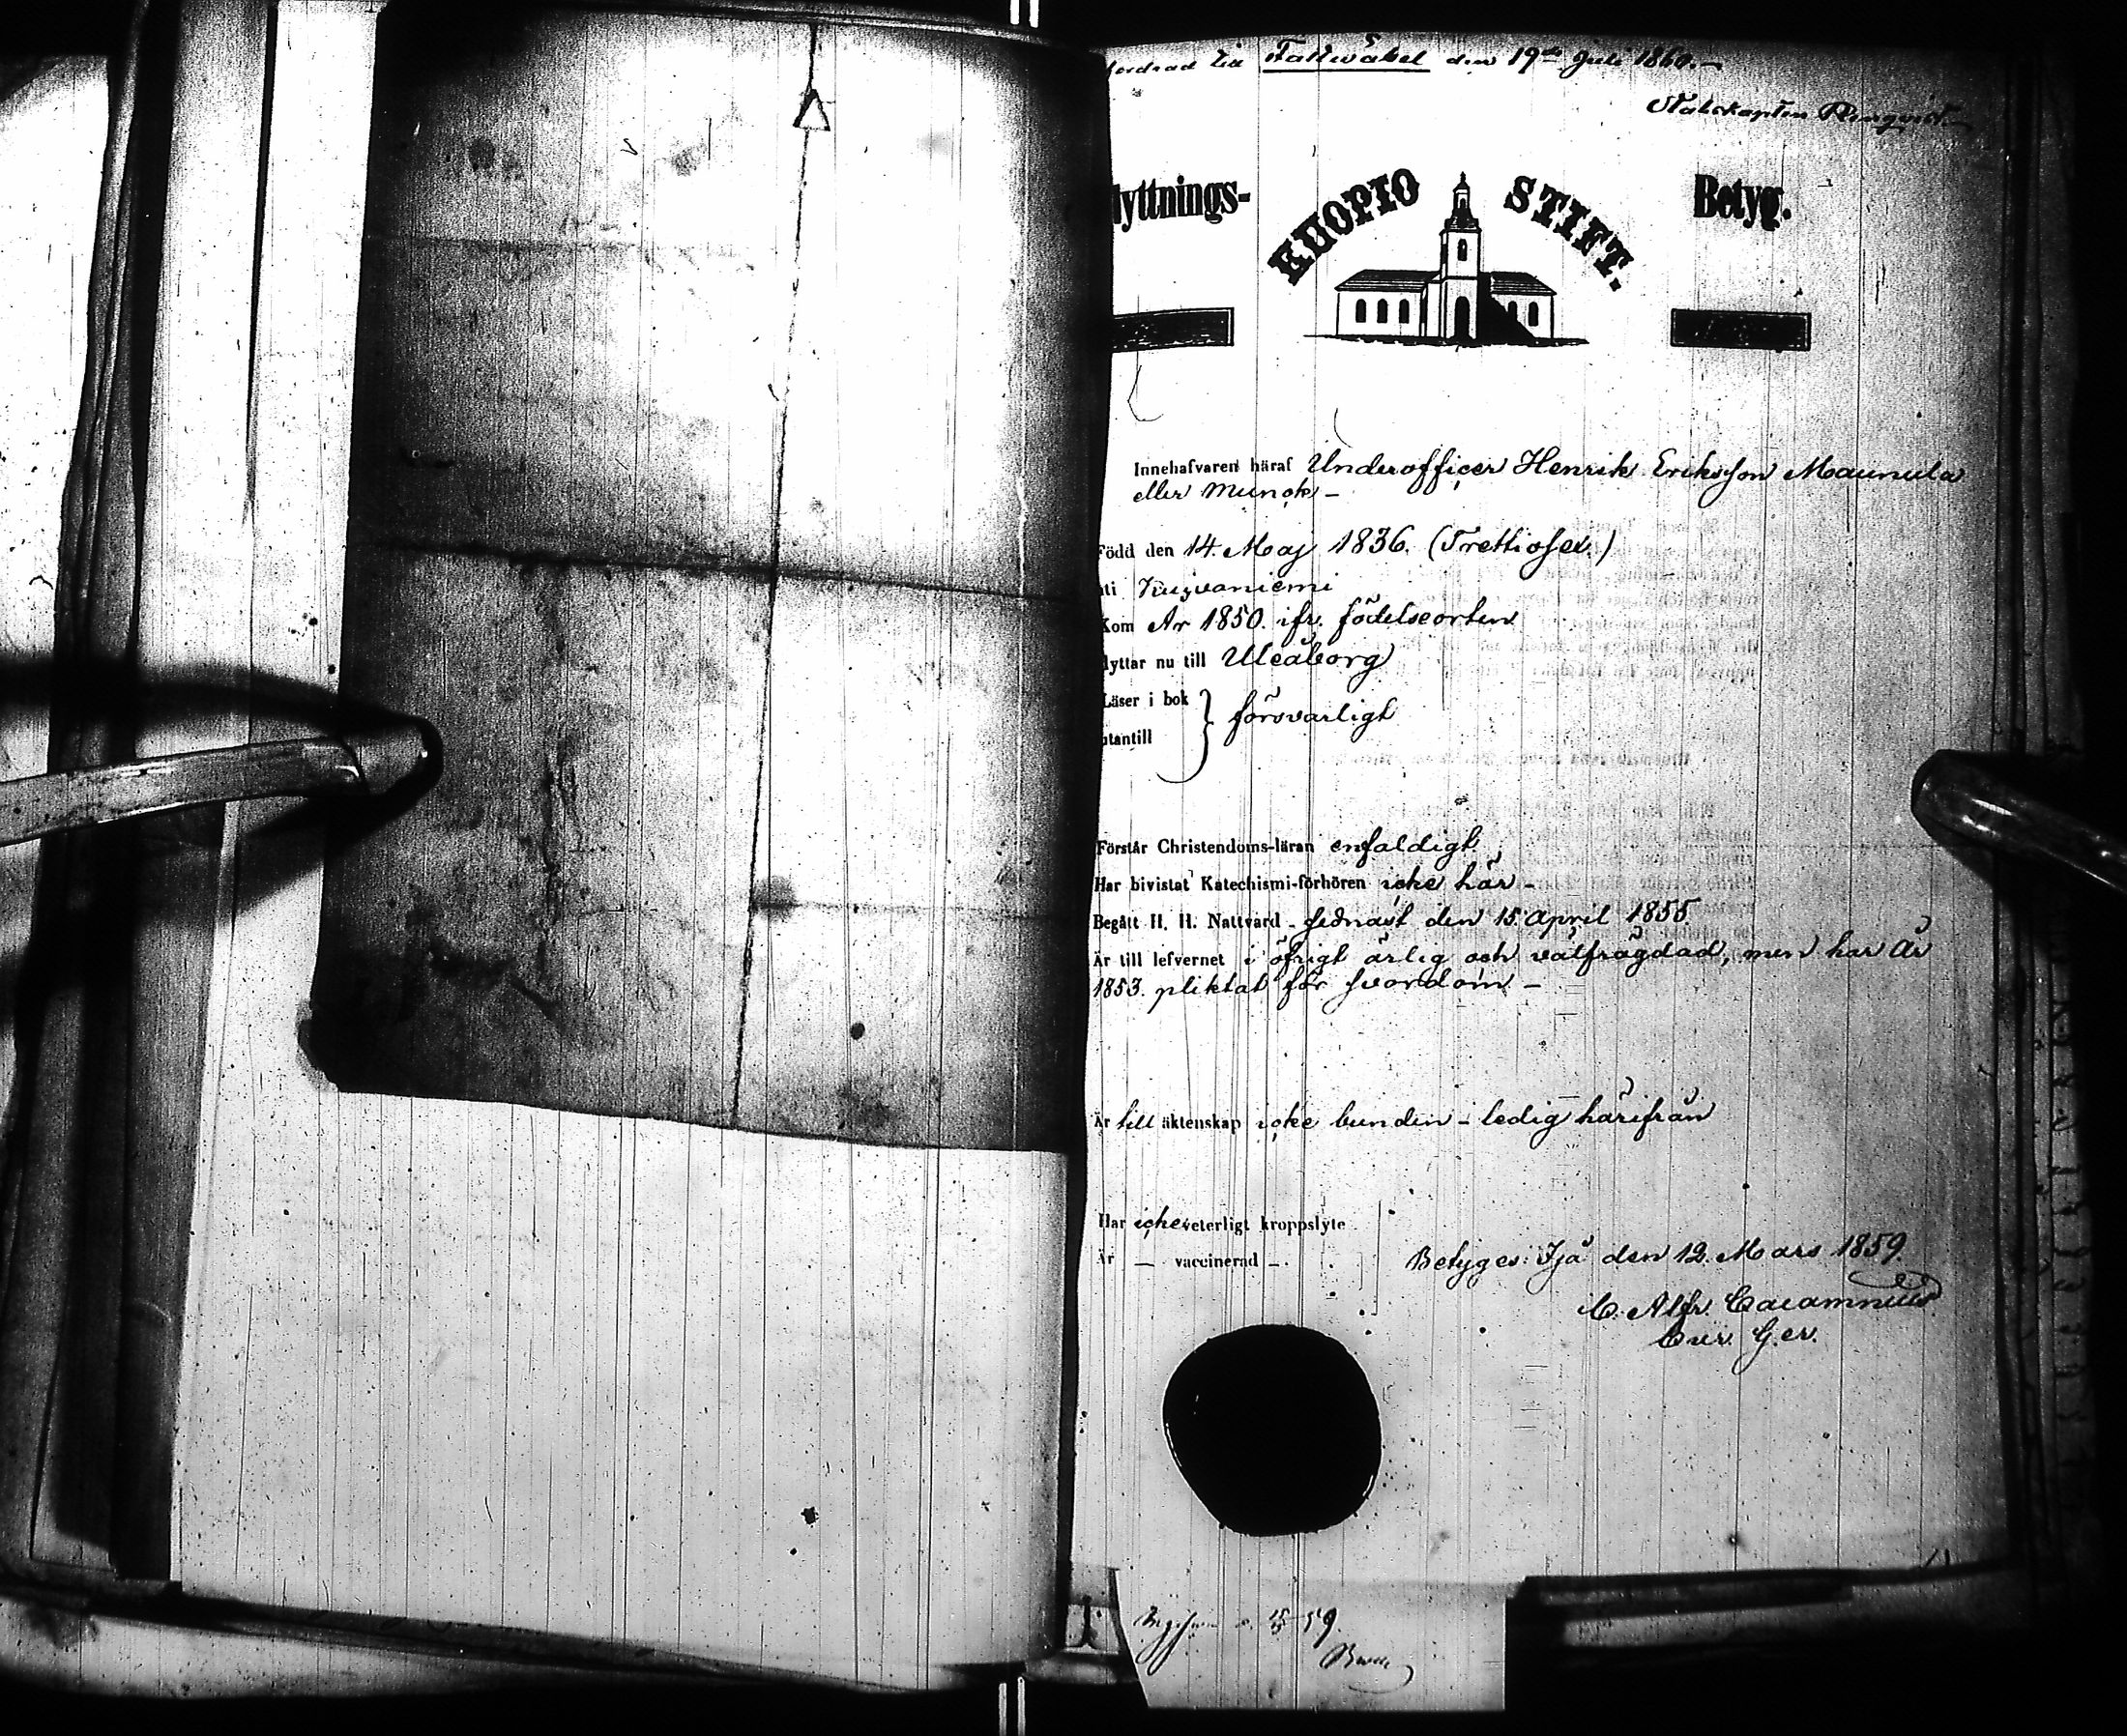 fordrad till Fältwäbel den 19de Juli 1860.
Stabskapten Ringvist.
lyttnings- KUOPIO STIFT. Betyg.
Innehafvaren häraf Underofficer Henrik Eriksson Maunula
eller Munck -
Född den 14. Maj 1836. (Trettiosex.)
uti Kuivaniemi
Kom År 1850. ifr. födelseorten
lyttar nu till Uleåborg
Läser i bok } försvarligt
utantill
Förstår Christendoms-läran enfaldigt
Har bivistat Katechismi-förhören icke här -
Begått H. H. Nattvard sednast den 15. April 1855
Är till lefvernet i öfrigt ärlig och välfrägdad, men har År
1853. pliktat för svordom -
Är till äktenskap icke bunden - ledig härifrån
Har icke veterligt kroppslyte
Är — vaccinerad -.
Betyges: Ijå den 12. Mars 1859.
C. Alfr. Cacamnius
Cur. Ger.
59.